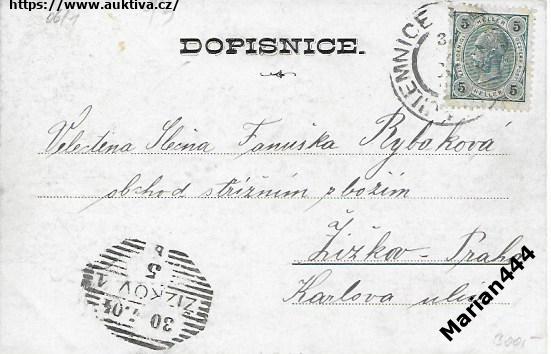 https://www.auktiva.cz/
DOPISNICE.
5 HELLER 5
Velectěna Slečna Fanuška Rybáková
obchod střižním zbožím
Žižkov - Praha
Karlova ulice
ŽIŽKOV 1
Marian444
300,-